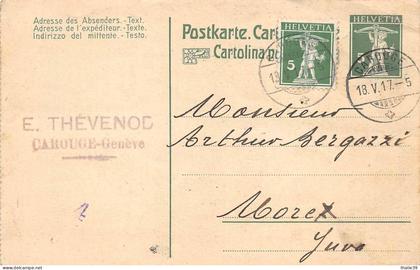 Adresse des Absenders.-Text.
Adresse de l'expéditeur.-Texte.
Indirizzo del mittente.-Testo.
Postkarte. Car
Cartolina po
5
CAROUGE
18.V.17.-5
E. THÉVENOD
CAROUGE-Genève
Monsieur
Arthur Bergazzi
Morez
Jura